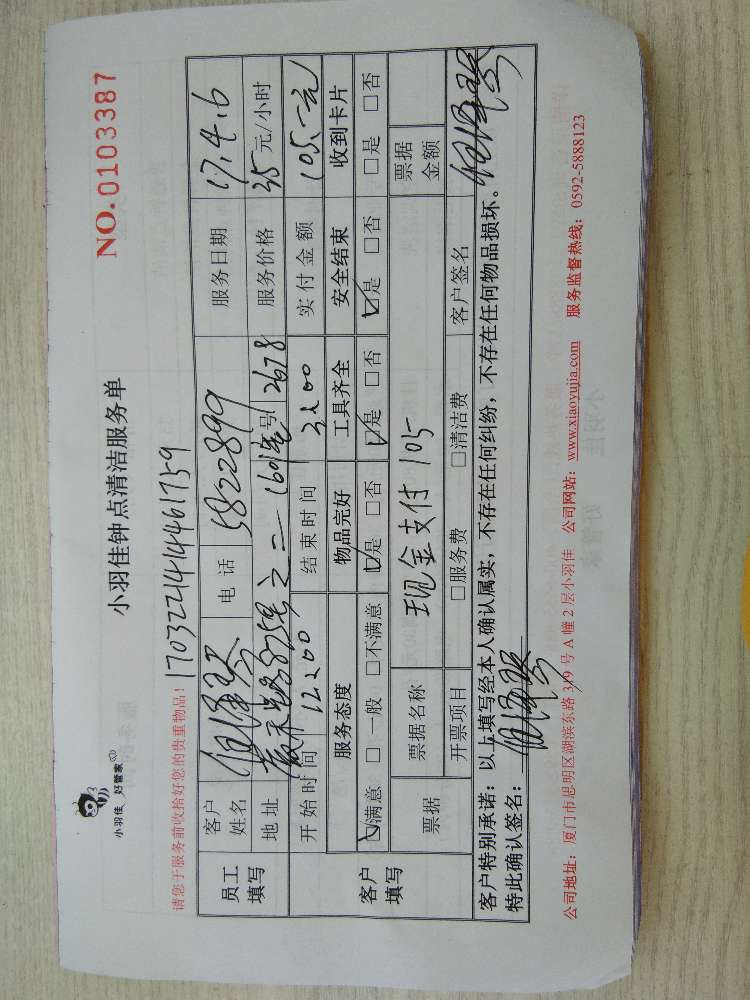 小羽佳 好管家
小羽佳钟点清洁服务单
NO.0103387
请您于服务前收拾好您的贵重物品! 1703221414461759
员工填写 客户姓名 电话 5822899 服务日期 17.4.6
地址 835号之二 1601室 工号 2678 服务价格 35元/小时
开始时间 12:00 结束时间 3:00 实付金额 105.-元
客户填写 服务态度 物品完好 工具齐全 安全结束 收到卡片
☑满意 □一般 □不满意 ☑是 □否 ☑是 □否 ☑是 □否 □是 □否
票据 票据名称 现金支付 105 票据金额
开票项目 □服务费 □清洁费 客户签名
客户特别承诺:以上填写经本人确认属实,不存在任何纠纷,不存在任何物品损坏。
特此确认签名:
公司地址:厦门市思明区湖滨东路 319 号 A 幢 2 层小羽佳 公司网站:www.xiaoyujia.com 服务监督热线:0592-5888123